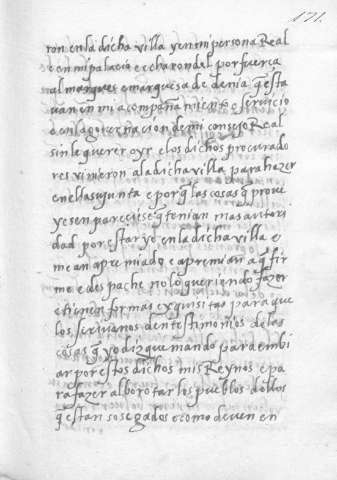 171.
ron en la dicha villa y en mi persona Real
e en mi palacio e echaron del por fuerça
al marques e marquesa de denia q̃ esta
uan en mi acompañamiento e seruicio
e en la gouernaçion de mi consejo Real
sin le querer oyr e los dichos procurado
res vinieron a la dicha villa para hazer
en ella su junta e porq̃ las cosas q̃ proui
yesen pareciese q̃ tenian mas autori
dad por estar yo en la dicha villa e
me an apremiado e apremian a q̃ fir
me e despache no lo queriendo fazer
e tienen formas exquisitas para que
los scriuanos den testimonios de las
cosas q̃ yo diz que mando para embi
ar por estos dichos mis Reynos e pa
ra fazer alborotar los pueblos dellos
q̃ estan sosegados e como deuen en